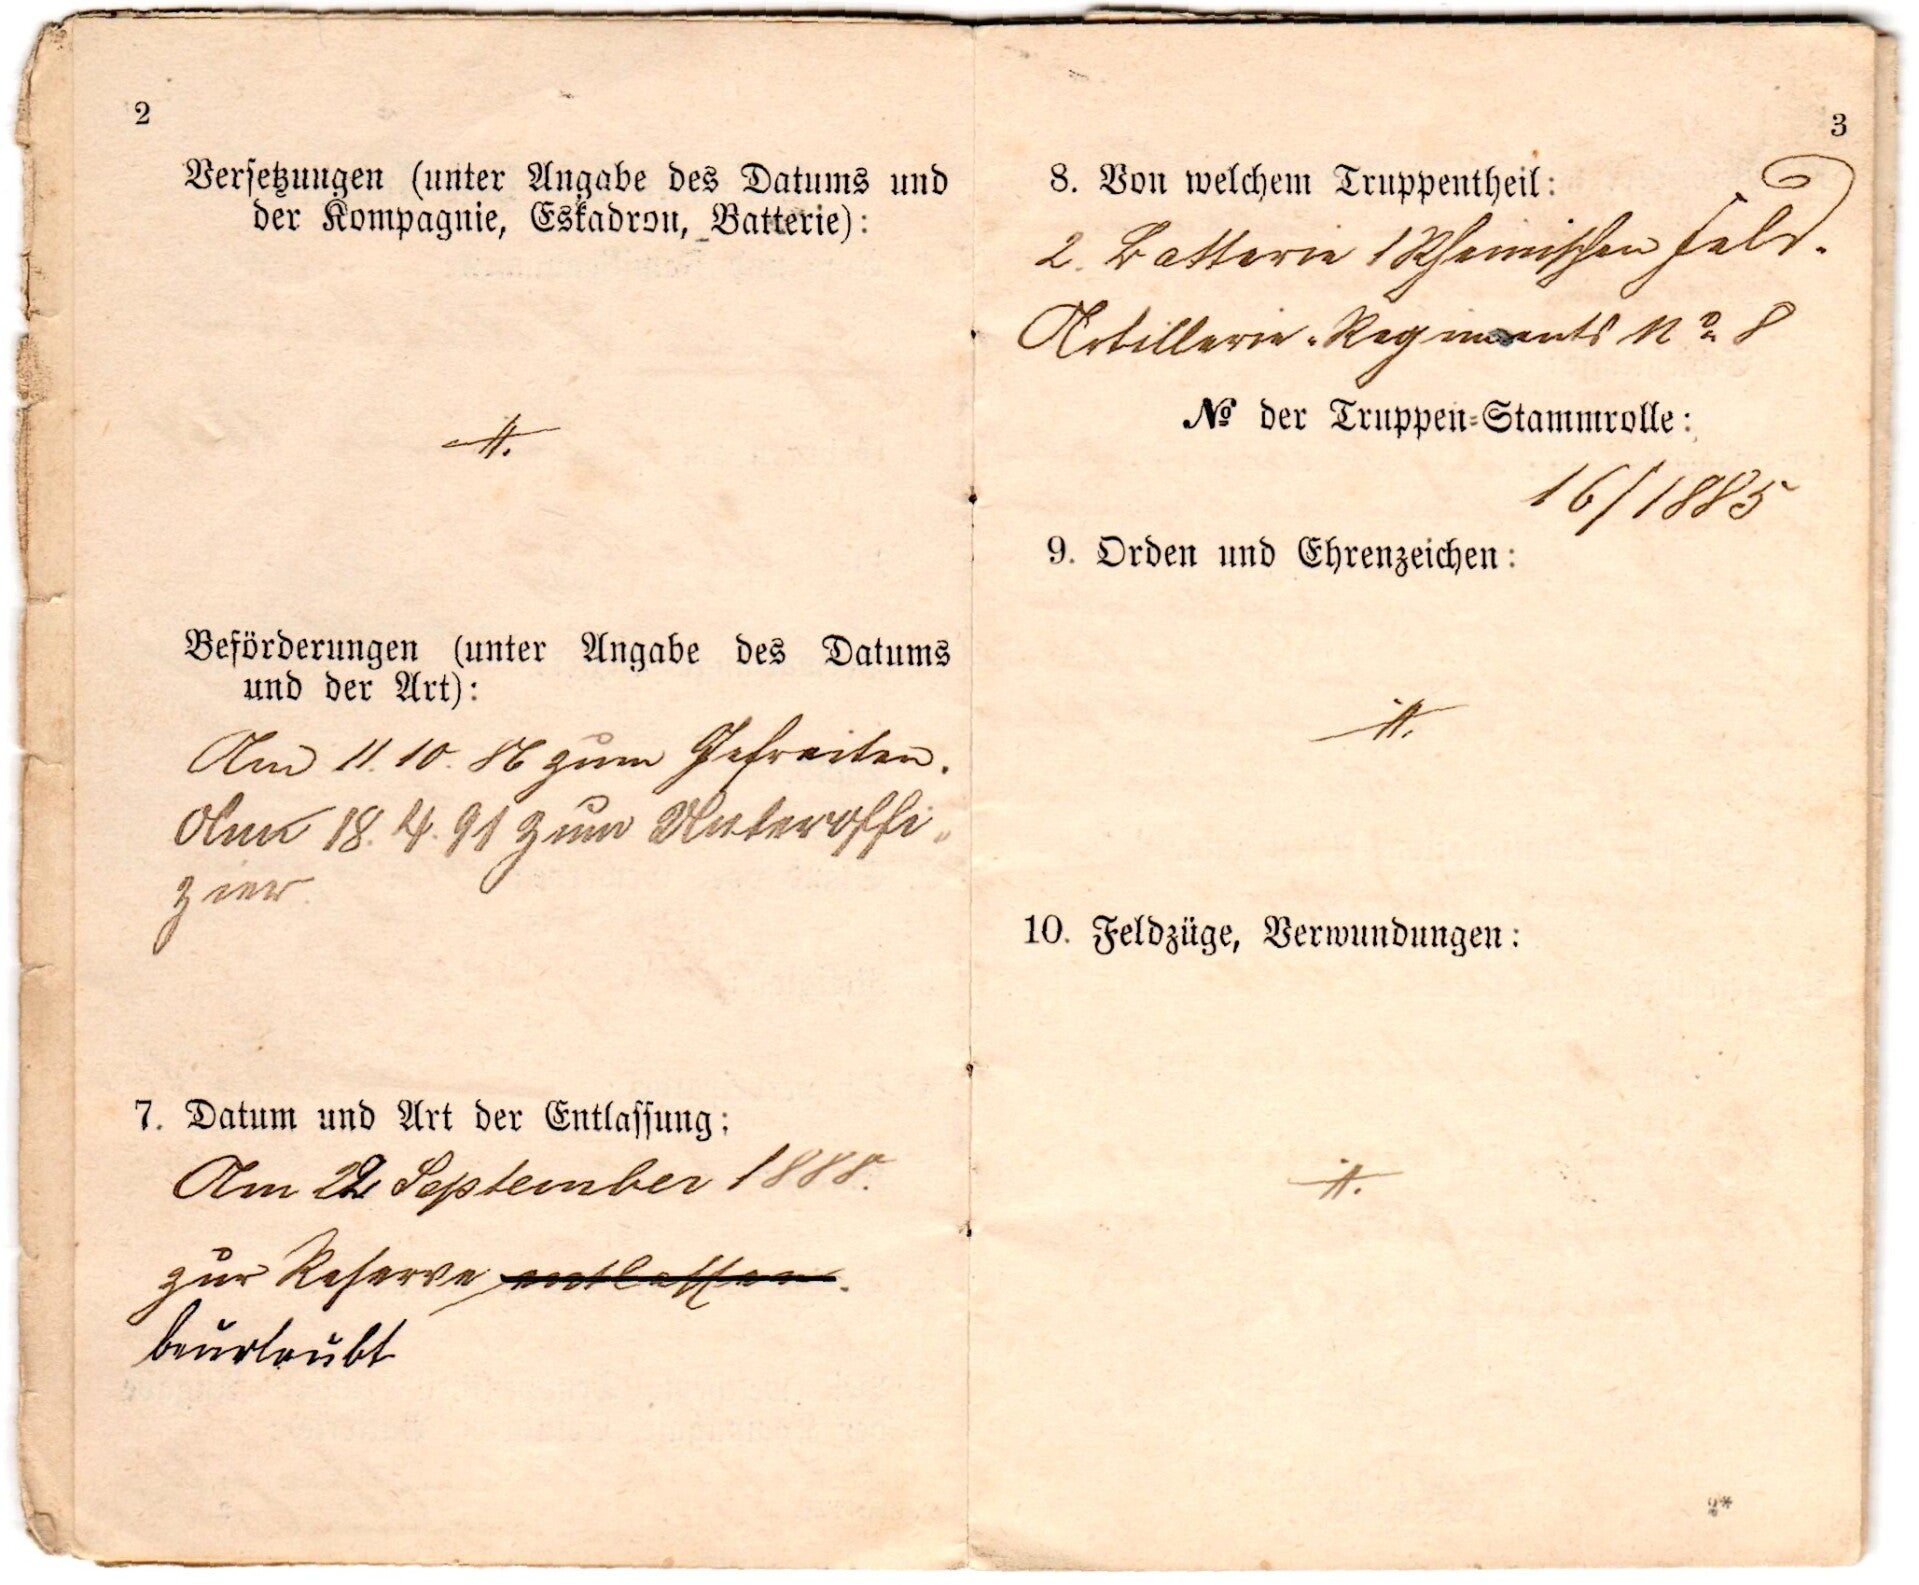 2
Versetzungen (unter Angabe des Datums und
der Kompagnie, Eskadron, Batterie):
Beförderungen (unter Angabe des Datums
und der Art):
Am 11. 10. 86 zum Gefreiten.
Am 18. 4. 91 zum Unteroffi-
zier.
7. Datum und Art der Entlassung:
Am 22 September 1888.
zur Reserve entlassen.
beurlaubt
3
8. Von welchem Truppentheil:
2. Batterie 1 Rheinischen Feld-
Artillerie-Regiments No 8
No der Truppen-Stammrolle:
16/1885
9. Orden und Ehrenzeichen:
10. Feldzüge, Verwundungen:
2*